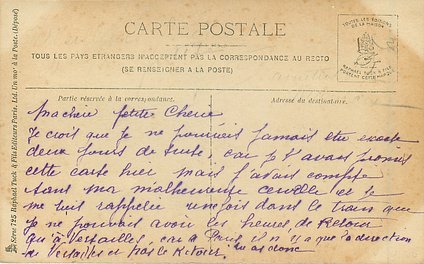 CARTE POSTALE
TOUS LES PAYS ETRANGERS N'ACCEPTENT PAS LA CORRESPONDANCE AU RECTO
(SE RENSEIGNER A LA POSTE)
TOUTES LES EDITIONS
DE LA MAISON
RAPHAEL TUCK & FILS
PORTENT CETTE MARQUE
Partie réservée à la correspondance.
Adresse du destinataire.
Ma chère petite Chérie
Je crois que je ne pourrais jamais être exacte
deux jours de suite, car je t'avais promis
cette carte hier mais j'avais compté
sans ma malheureuse cervelle et je
me suis rappelée une fois dans le train que
je ne pouvais avoir les heures de Retour
qu'à Versailles, car à Paris il n'y a que la direction
de Versailles et pas le Retour. donc
Série 745 Raphael Tuck & Fils Editeurs Paris, Ltd. Un mot à la Poste. (Déposé)